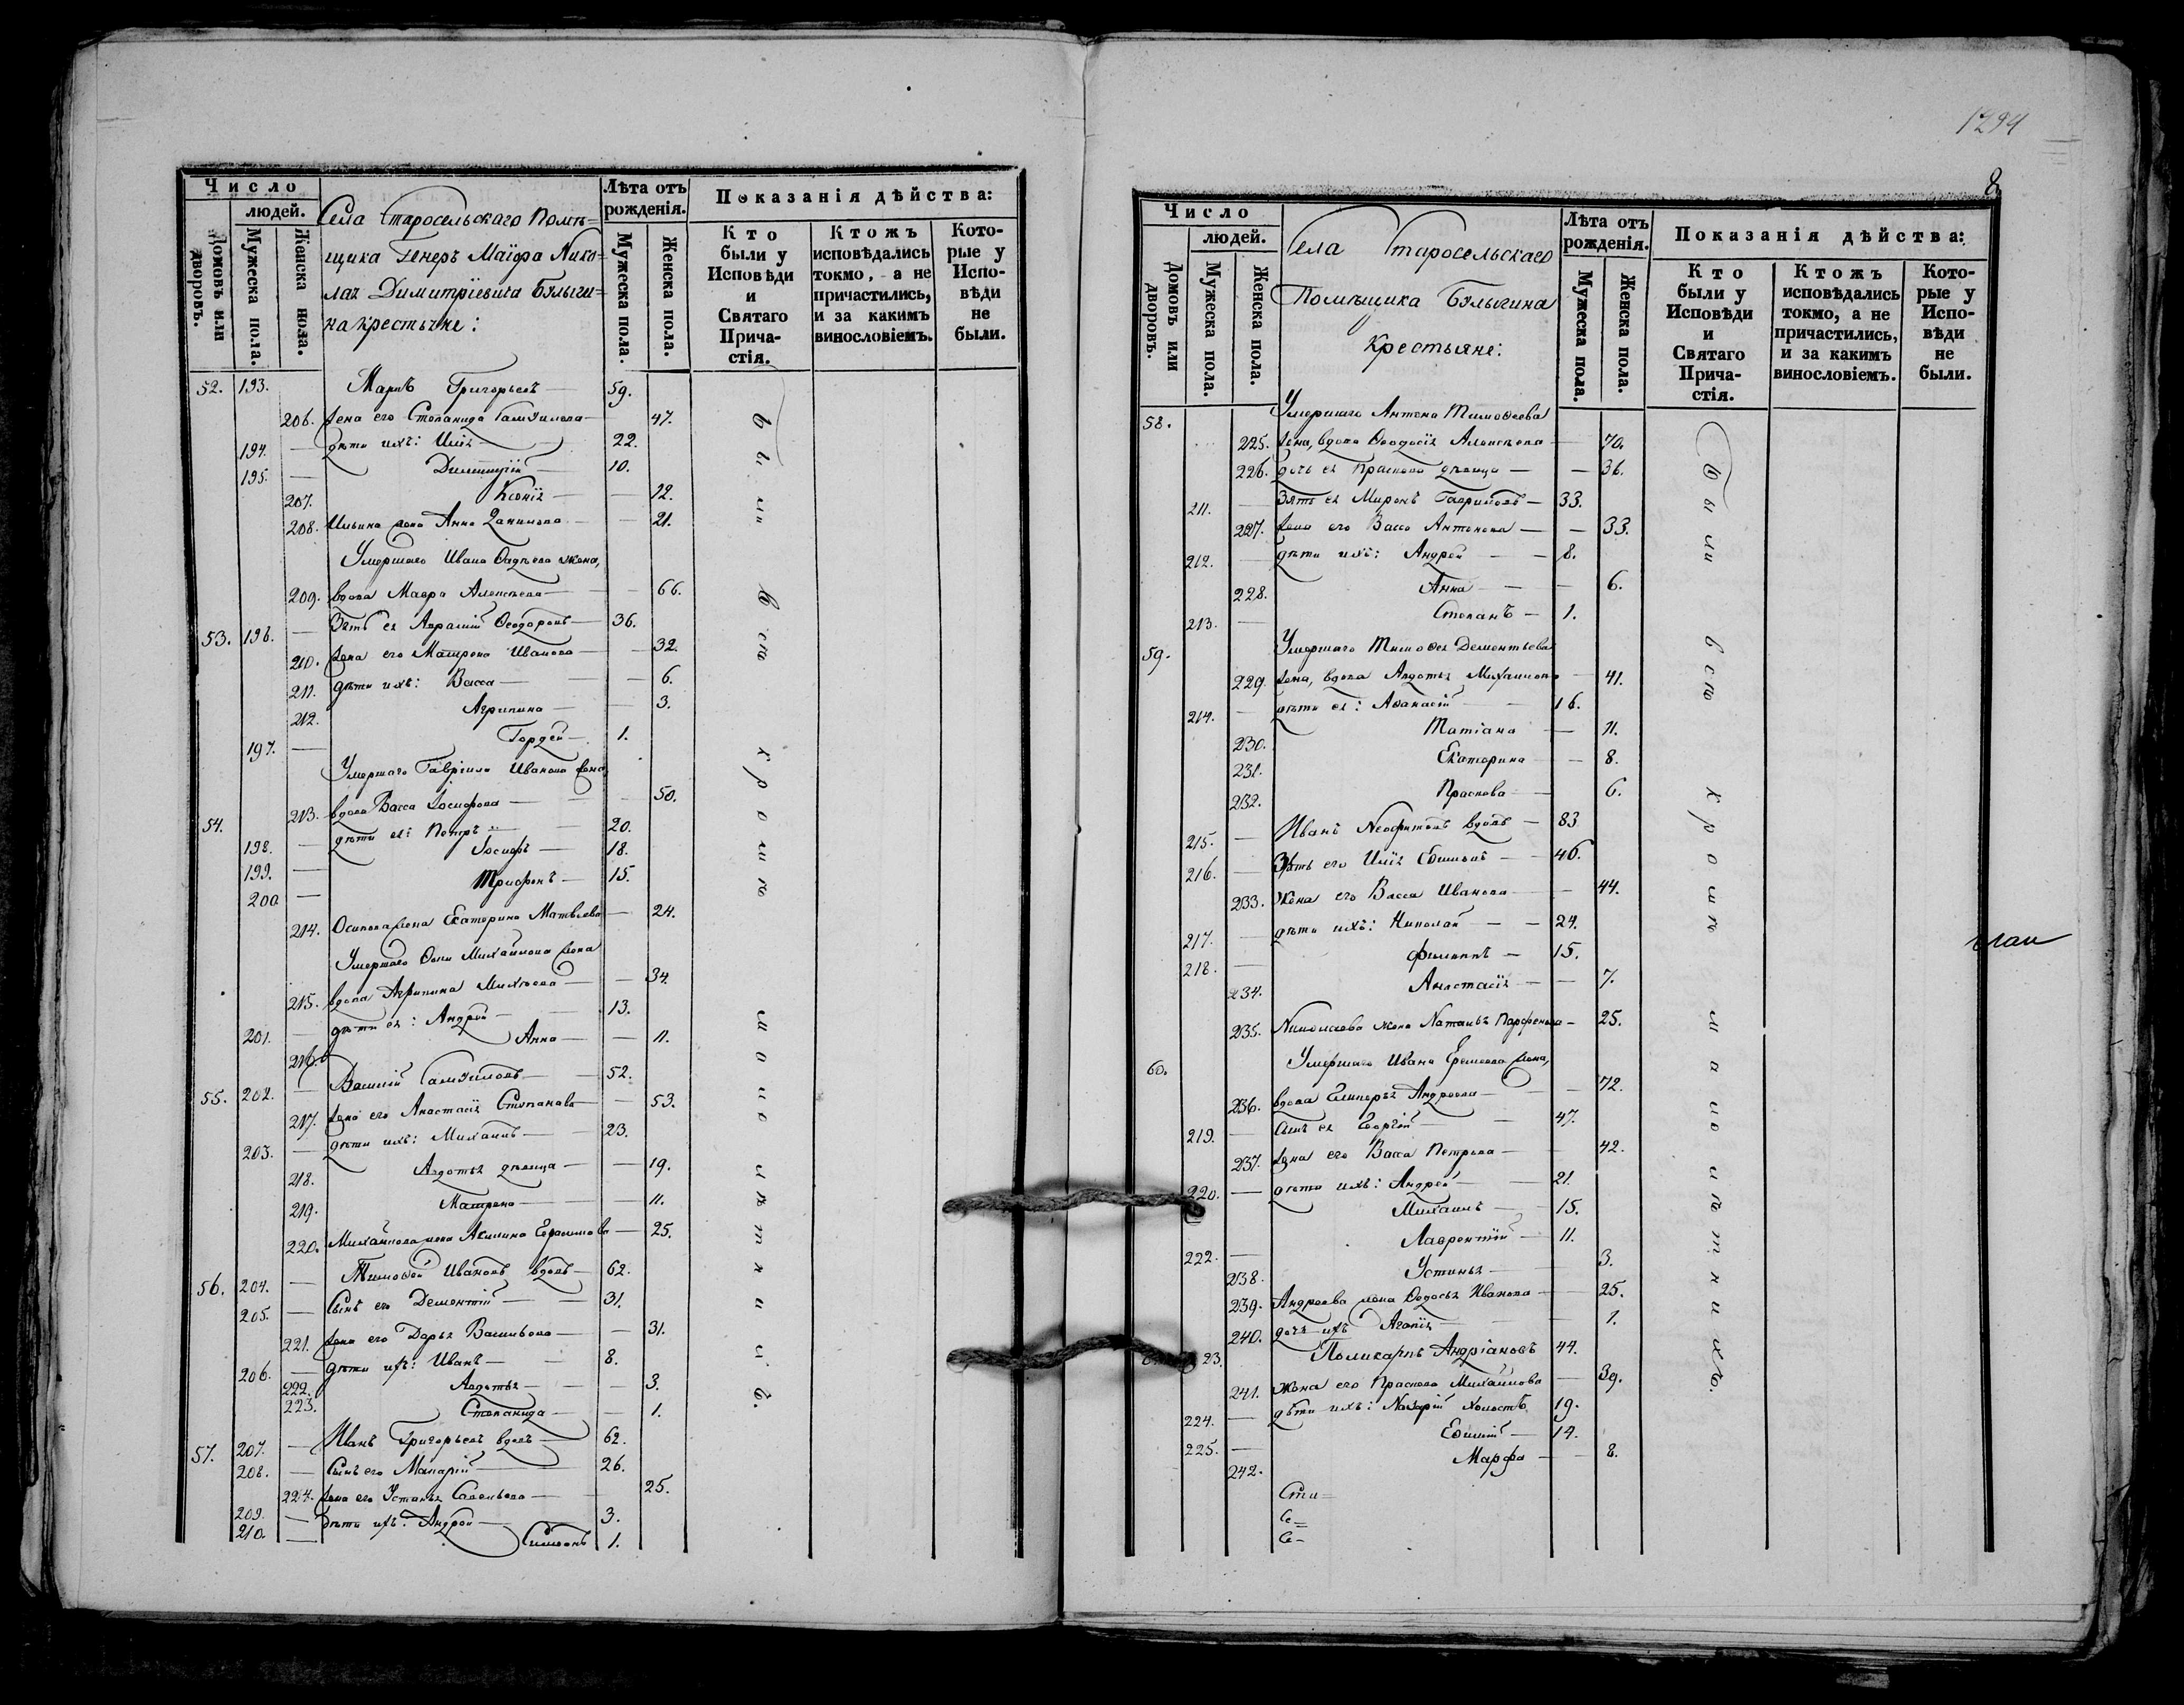 Число
людей.
Домовъ или дворовъ.
Мужеска пола.
Женска пола.
Села Старосельскаго Помѣ=
щика Генеръ Маіора Нико=
лая Димитріевича Булыги=
на крестьяне:
Лѣта отъ рожденія.
Мужеска пола.
Женска пола.
Показанія дѣйства:
Кто были у Исповѣди и Святаго Прича-стія.
Ктожъ исповѣдались токмо, а не причастились, и за какимъ винословіемъ.
Кото-рые у Испо-вѣди не были.
52. 193. Григорьевъ 59.
206. жена его Степанида Самуилова 47.
194. дѣти ихъ: Илія 22.
195. Димитрій 10.
207. Ксенія 12.
208. Ильина жена Анна 21.
Умершаго Ивана Фадѣева жена,
209. вдова Мавра Алексѣева 66.
53. 196. Зять ея Ѳеодоровъ 36.
210. жена его Матрона Иванова 32.
211. дѣти ихъ: Васса 6.
212. Агрипина 3.
197. Гордей 1.
Умершаго Гавріила Иванова жена
54. 213. вдова Васса Іосифова 50.
198. дѣти ея: Петръ 20.
199. Іосифъ 18.
200 Трифонъ 15.
214. Осипова жена Екатерина Матвѣева 24.
Умершаго Михайлова жена
215. вдова Агрипина Михѣева 34.
201. дѣти ея: Андрей 13.
216. Анна 11.
55. 202. Василій Самуиловъ 52.
217. жена его Анастасія Степанова 53.
203. дѣти ихъ: Михаилъ 23.
218. Авдотья дѣвица 19.
219. Матрона 11.
220. Михайлова жена Акилина Ефимова 25.
56. 204. Тимоѳей Ивановъ вдовъ 62.
205. Сынъ его Дементій 31.
221. жена его Дарья Васильева 31.
206. дѣти ихъ: Иванъ 8.
222. Авдотья 3.
223. Степанида 1.
57. 207. Иванъ Григорьевъ вдовъ 62.
208. Сынъ его Макарій 26.
224. жена его Устинья Савельева 25.
209. дѣти ихъ: Андрей 3.
210. Симеонъ 1.
Были всѣ кромѣ малолѣтнихъ.
1294
8
Число
людей.
Домовъ или дворовъ.
Мужеска пола.
Женска пола.
Села Старосельскаго
Помѣщика Булыгина
Крестьяне:
Лѣта отъ рожденія.
Мужеска пола.
Женска пола.
Показанія дѣйства:
Кто были у Исповѣди и Святаго Прича-стія.
Ктожъ исповѣдались токмо, а не причастились, и за какимъ винословіемъ.
Кото-рые у Испо-вѣди не были.
58. Умершаго Антона Тимоѳеева
225. жена, вдова Ѳеодосія Алексѣева 70.
226. дочь ея Праскева дѣвица 36.
211. Зять ея Миронъ Гавриловъ 33.
227. жена его Васса Антонова 33.
212. дѣти ихъ: Андрей 8.
228. Анна 6.
213. Степанъ 1.
59. Умершаго Тимоѳея Дементьева
229. жена, вдова Авдотья Михайлова 41.
214. дѣти ея: Аѳанасій 16.
230. Татіана 11.
231. Екатерина 8.
232. Праскева 6.
215. Иванъ Неофитовъ вдовъ 83
216. Зять его Илія 46.
233. Жена его Васса Иванова 44.
217. дѣти ихъ: Николай 24.
218. Филиппъ 15.
234. Анастасія 7.
235. Николаева жена Наталья Парфенова 25.
60. Умершаго Ивана Еремеева жена,
236. вдова Гликерья Андреева 72.
219. Сынъ ея Георгій 47.
237. жена его Васса Петрова 42.
220. дѣти ихъ: Андрей 21.
Михаилъ 15.
222. Лаврентій 11.
238. Устинья 3.
239. Андреева жена Ѳедосья Иванова 25.
240. дочь ихъ Агапія 1.
23. Поликарпъ Андріановъ 44.
241. Жена его Праскева Михайлова 39.
224. дѣти ихъ: Назарій холостъ 19.
225. Евѳимій 14.
242. Марфа 8.
Сти=
С=
С-
Были всѣ кромѣ малолѣтнихъ.